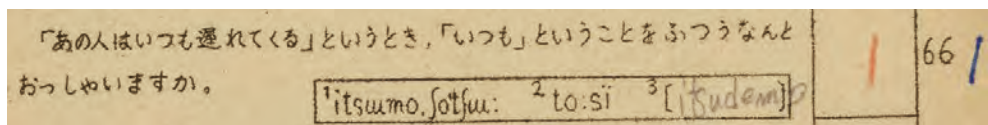 「あの人はいつも遅れてくる」というとき，「いつも」ということをふつうなんと 66
おっしゃいますか。
1 itsɯmo, ʃotʃɯ: 2 to:sï 3 [itsudemo]